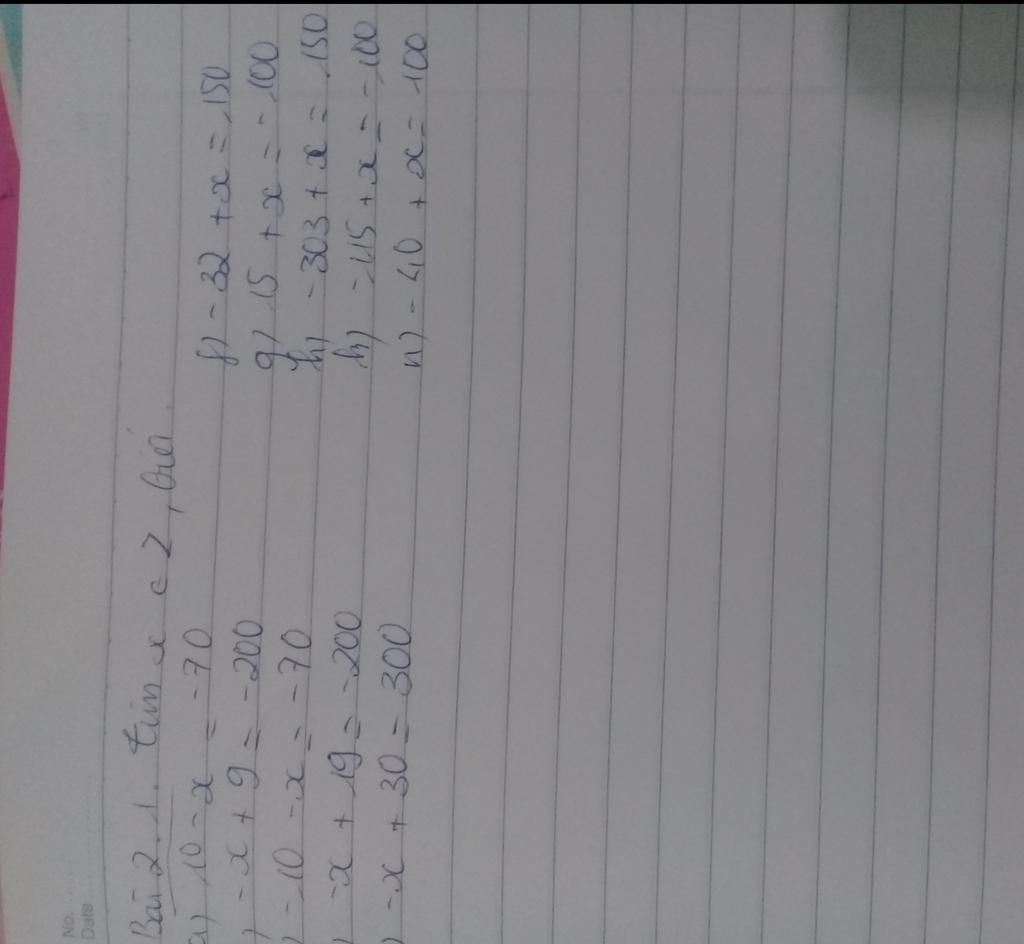 No.
Date
Bài 2.1. Tìm x ∈ Z, biết
a) 10 - x = -70
) -x + 9 = -200
) -10 - x = -70
) -x + 19 = -200
) -x + 30 = 300
f) -32 + x = 150
g) 15 + x = -100
h) -303 + x = 150
h) -115 + x = -100
n) -40 + x = 100